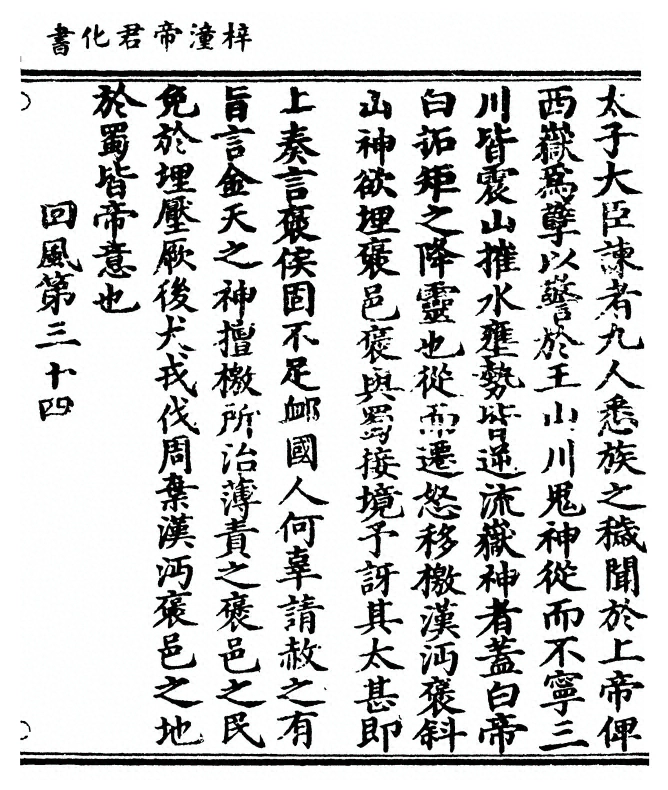 梓潼帝君化書
太子大臣諫者九人悉族之穢聞於上帝俾
西嶽爲孽以警於王山川鬼神從而不寧三
川皆震山摧水壅勢皆逆流嶽神者蓋白帝
白招矩之降靈也從而遷怒移檄漢沔褒斜
山神欲埋褒邑褒與蜀接境予訝其太甚即
上奏言褒侯固不足卹國人何辜請赦之有
旨言金天之神擅檄所治薄責之褒邑之民
免於埋壓厥後犬戎伐周棄漢沔褒邑之地
於蜀皆帝意也
回風第三十四